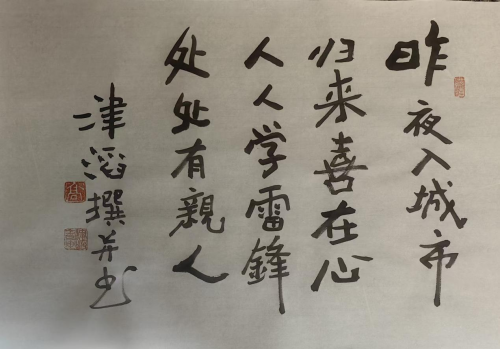 昨夜入城市
归来喜在心
人人学雷锋
处处有親人
津滔撰并书